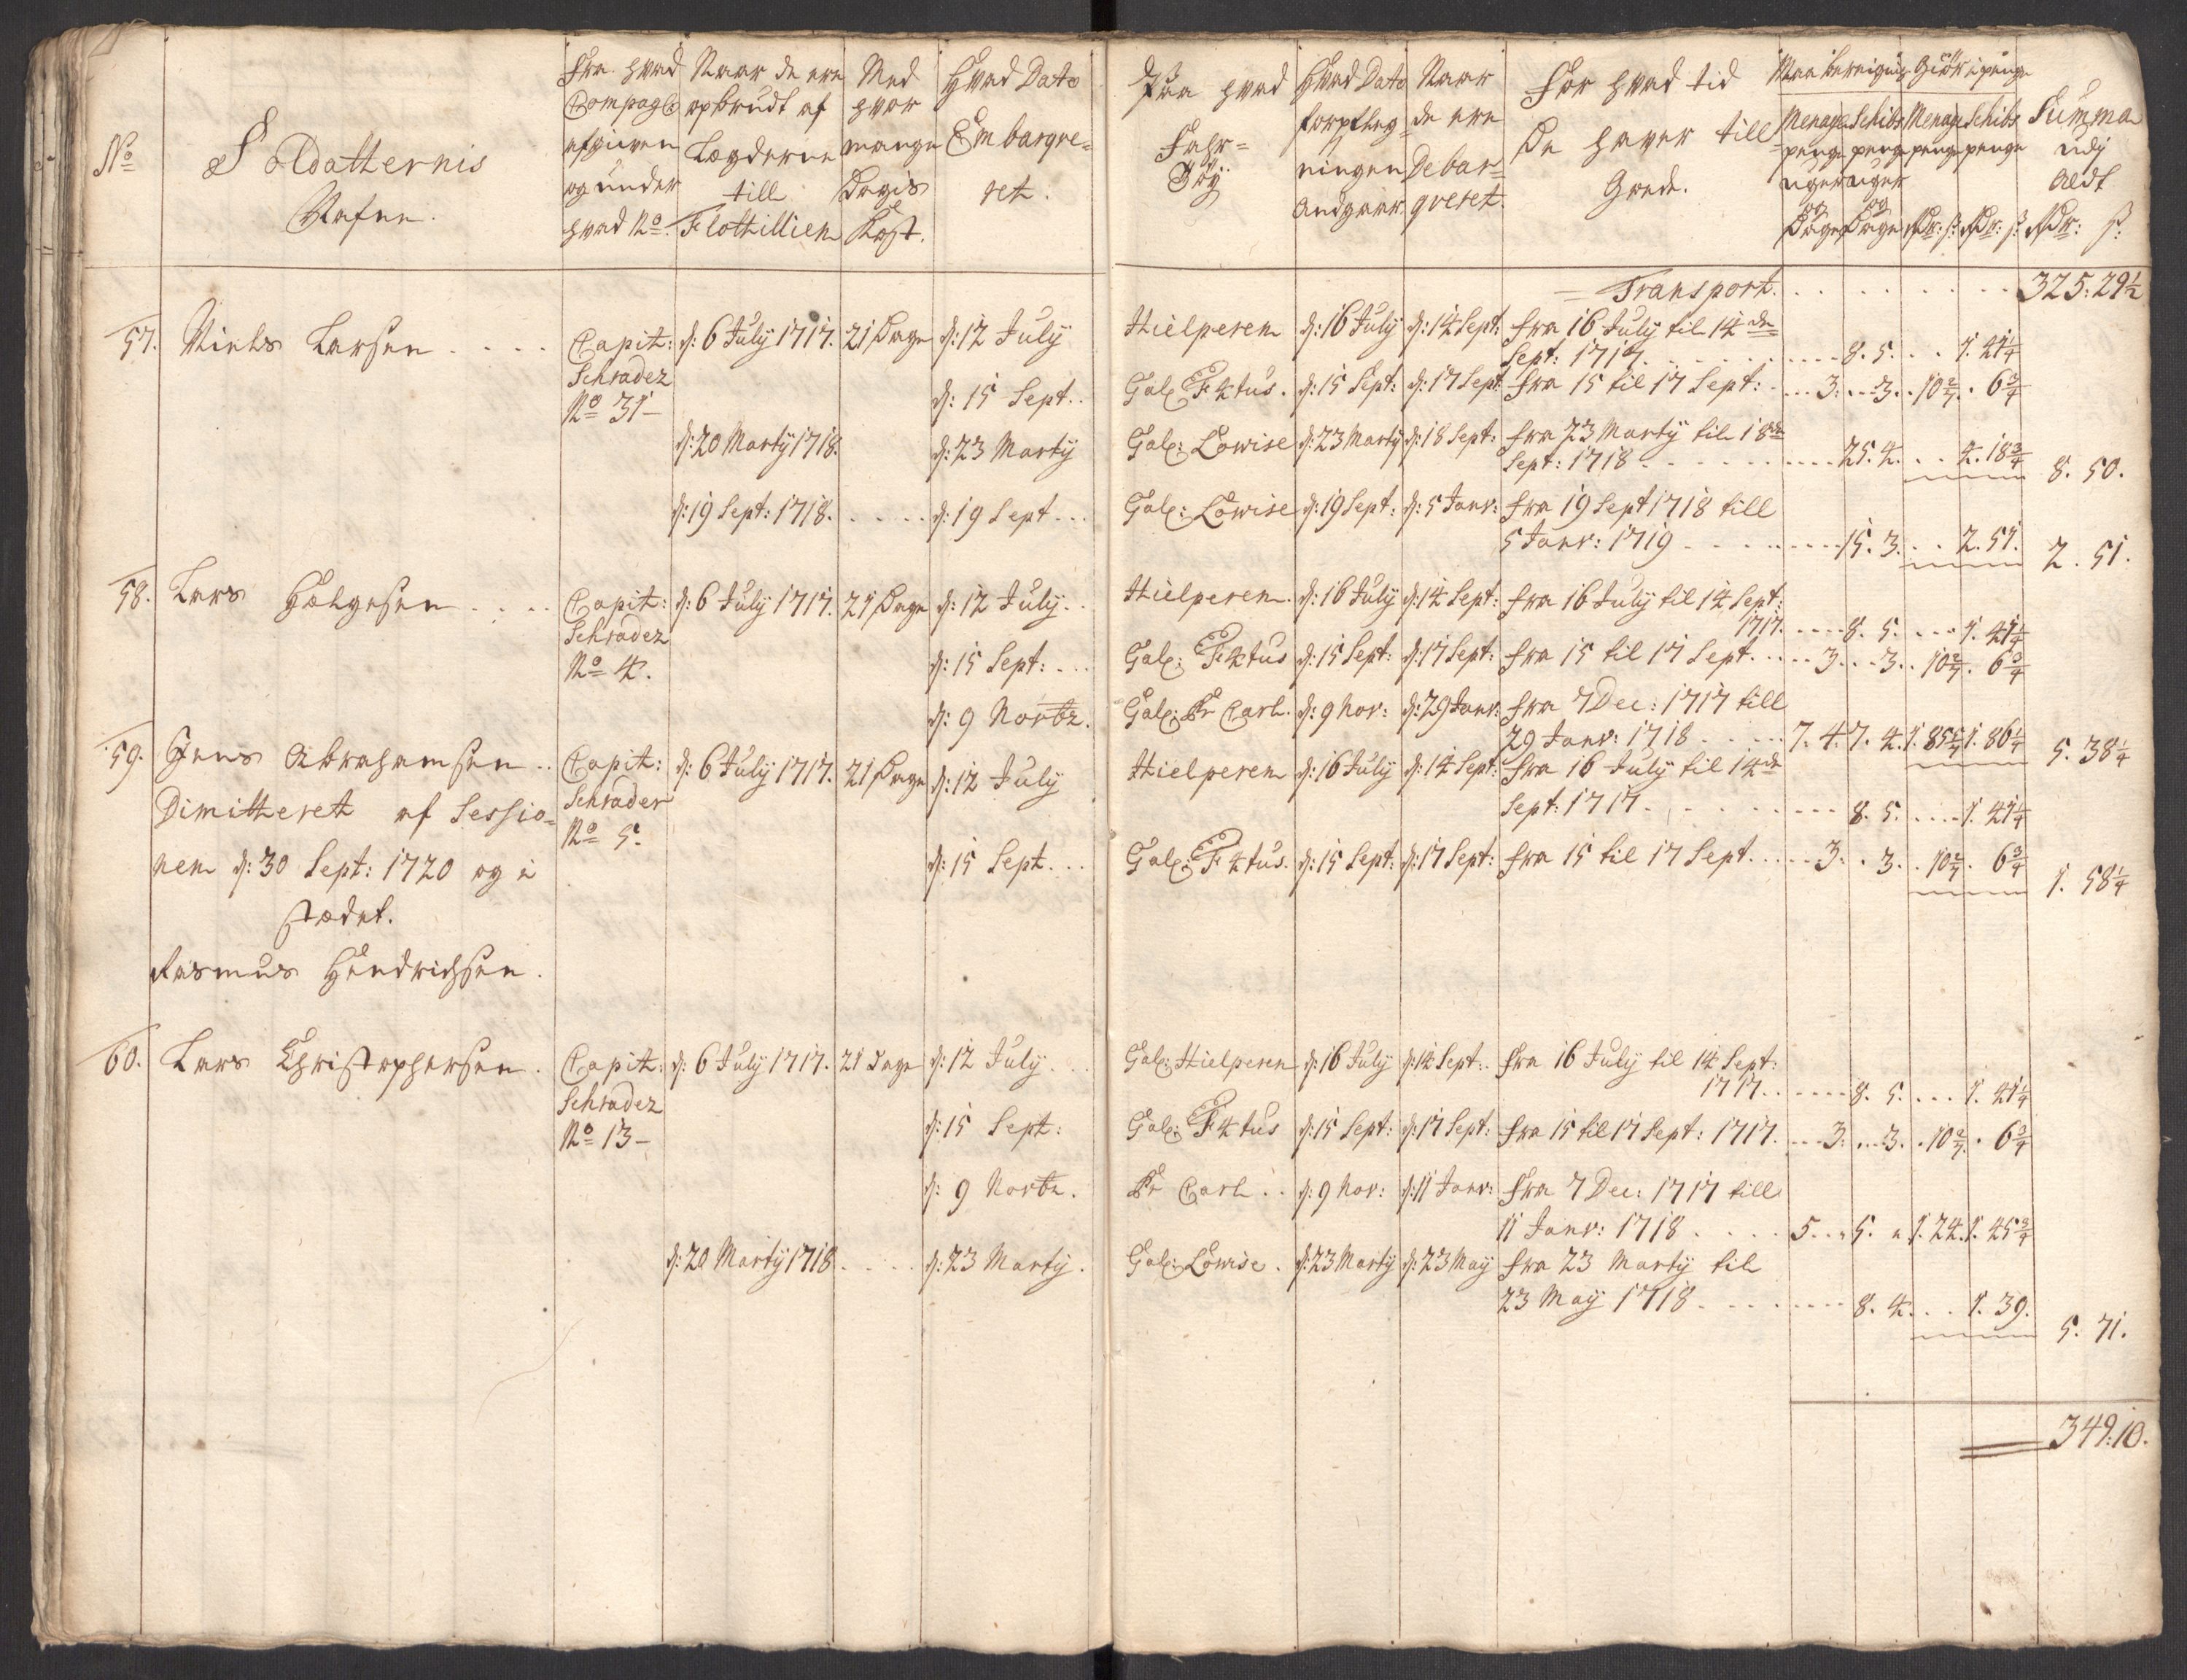 No
Soldatternis
Nafne.
Fra hvad
Compagie
afgiven
og under
hvad No.
Naar de ere
opbrudt af
Lægderne
till
Flottillien
Med
hvor
mange
Dagis
Kost.
Hvad Dato
Embarqve-
ret.
Paa hvad
Fahr-
Töy
Hvad Dato
forpfleg-
ningen
Andgaar
Naar
de ere
Debar-
qveret.
For hvad tid
De haver till
Gode.
Giör i penge
Menage
penge
uger
og
Dage
Schibs
penge
uger
og
Dage
Menage
penge
Rdr: ß:
Schibs
penge
Rdr: ß:
Summa
udj
Aldt
Rdr: ß:
Transport. . . . . . . . . 325: 29½
57. Niels Larsen . . . . Capit: d: 6 July 1717. 21 Dage d: 12 July Hielperen d: 16 July d: 14 Sept: fra 16 July til 14de
Schrader Sept: 1717. . . . . 8. 5. . . 1. 41¼
No 31- d: 15 Sept. . Gal: Fictus. d: 15 Sept: d: 17 Sept: fra 15 til 17 Sept: . . . 3. . . 3. . 10 2/7. . 6¾
d: 20 Marty 1718. d: 23 Marty Gal: Lowise d: 23 Marty d: 18 Sept: fra 23 Marty til 18de
Sept: 1718 . . . . . 25. 4. . . 4. 18¾ 8. 50.
d: 19 Sept: 1718. . . . . d: 19 Sept . . . Gal: Lowise d: 19 Sept: d: 5 Janv: fra 19 Sept 1718 till
5 Janv: 1719 . . . . . 15. 3. . . 2. 51. 2. 51.
58. Lars Helgesen . . . . Capit: d: 6 July 1717. 21 Dage d: 12 July. . Hielperen. d: 16 July d: 14 Sept: fra 16 July til 14 Sept:
Schrader 1717. . . . . 8. 5. . . . 1. 41¼
No 4. d: 15 Sept: . . . Gal: Fictus d: 15 Sept: d: 17 Sept: fra 15 til 17 Sept. . . . . 3. . . 3. . 10 2/7. . 6¾
d: 9 Novbr. Gal: Pr Carl. d: 9 Nov: d: 29 Janv: fra 7 Dec: 1717 till
29 Janv: 1718 . . . . . 7. 4. 7. 4. 1. 85 5/7 1. 86¼ 5. 38¼
59. Jens Abrahamsen . . Capit: d: 6 July 1717. 21 Dage d: 12 July Hielperen d: 16 July d: 14 Sept: fra 16 July til 14de
Dimitteret af Sessio- Schrader Sept: 1717. . . . . 8. 5. . . . . 1. 41¼
No 5.
nen d: 30 Sept: 1720 og i d: 15 Sept. . . Gal: Fictus. d: 15 Sept: d: 17 Sept: fra 15 til 17 Sept. . . . . 3. . 3. . 10 2/7. . 6¾ 1. 58¼
stædet.
Rasmus Hendrichsen.
60. Lars Christophersen. Capit: d: 6 July 1717. 21 Dage d: 12 July. . . Gal: Hielperen d: 16 July d: 14 Sept: . fra 16 July til 14 Sept:
Schrader 1717. . . . . 8. 5. . . . 1. 41¼
No 13- d: 15 Sept: Gal: Fictus d: 15 Sept: d: 17 Sept: fra 15 til 17 Sept: 1717. . . . 3. . . 3. . 10 2/7. . 6¾
d: 9 Novbr. Pr Carl . . d: 9 Nov: d: 11 Janv: fra 7 Dec: 1717 till
11 Janv: 1718 . . . . 5. . 5. 1. 24. 1. 45¾
d: 20 Marty 1718 . . . . d: 23 Marty. Gal: Lowise. d: 23 Marty d: 23 May fra 23 Marty til
23 May 1718 . . . . . 8. 4. . . 1. 39. 5. 71.
349: 10.